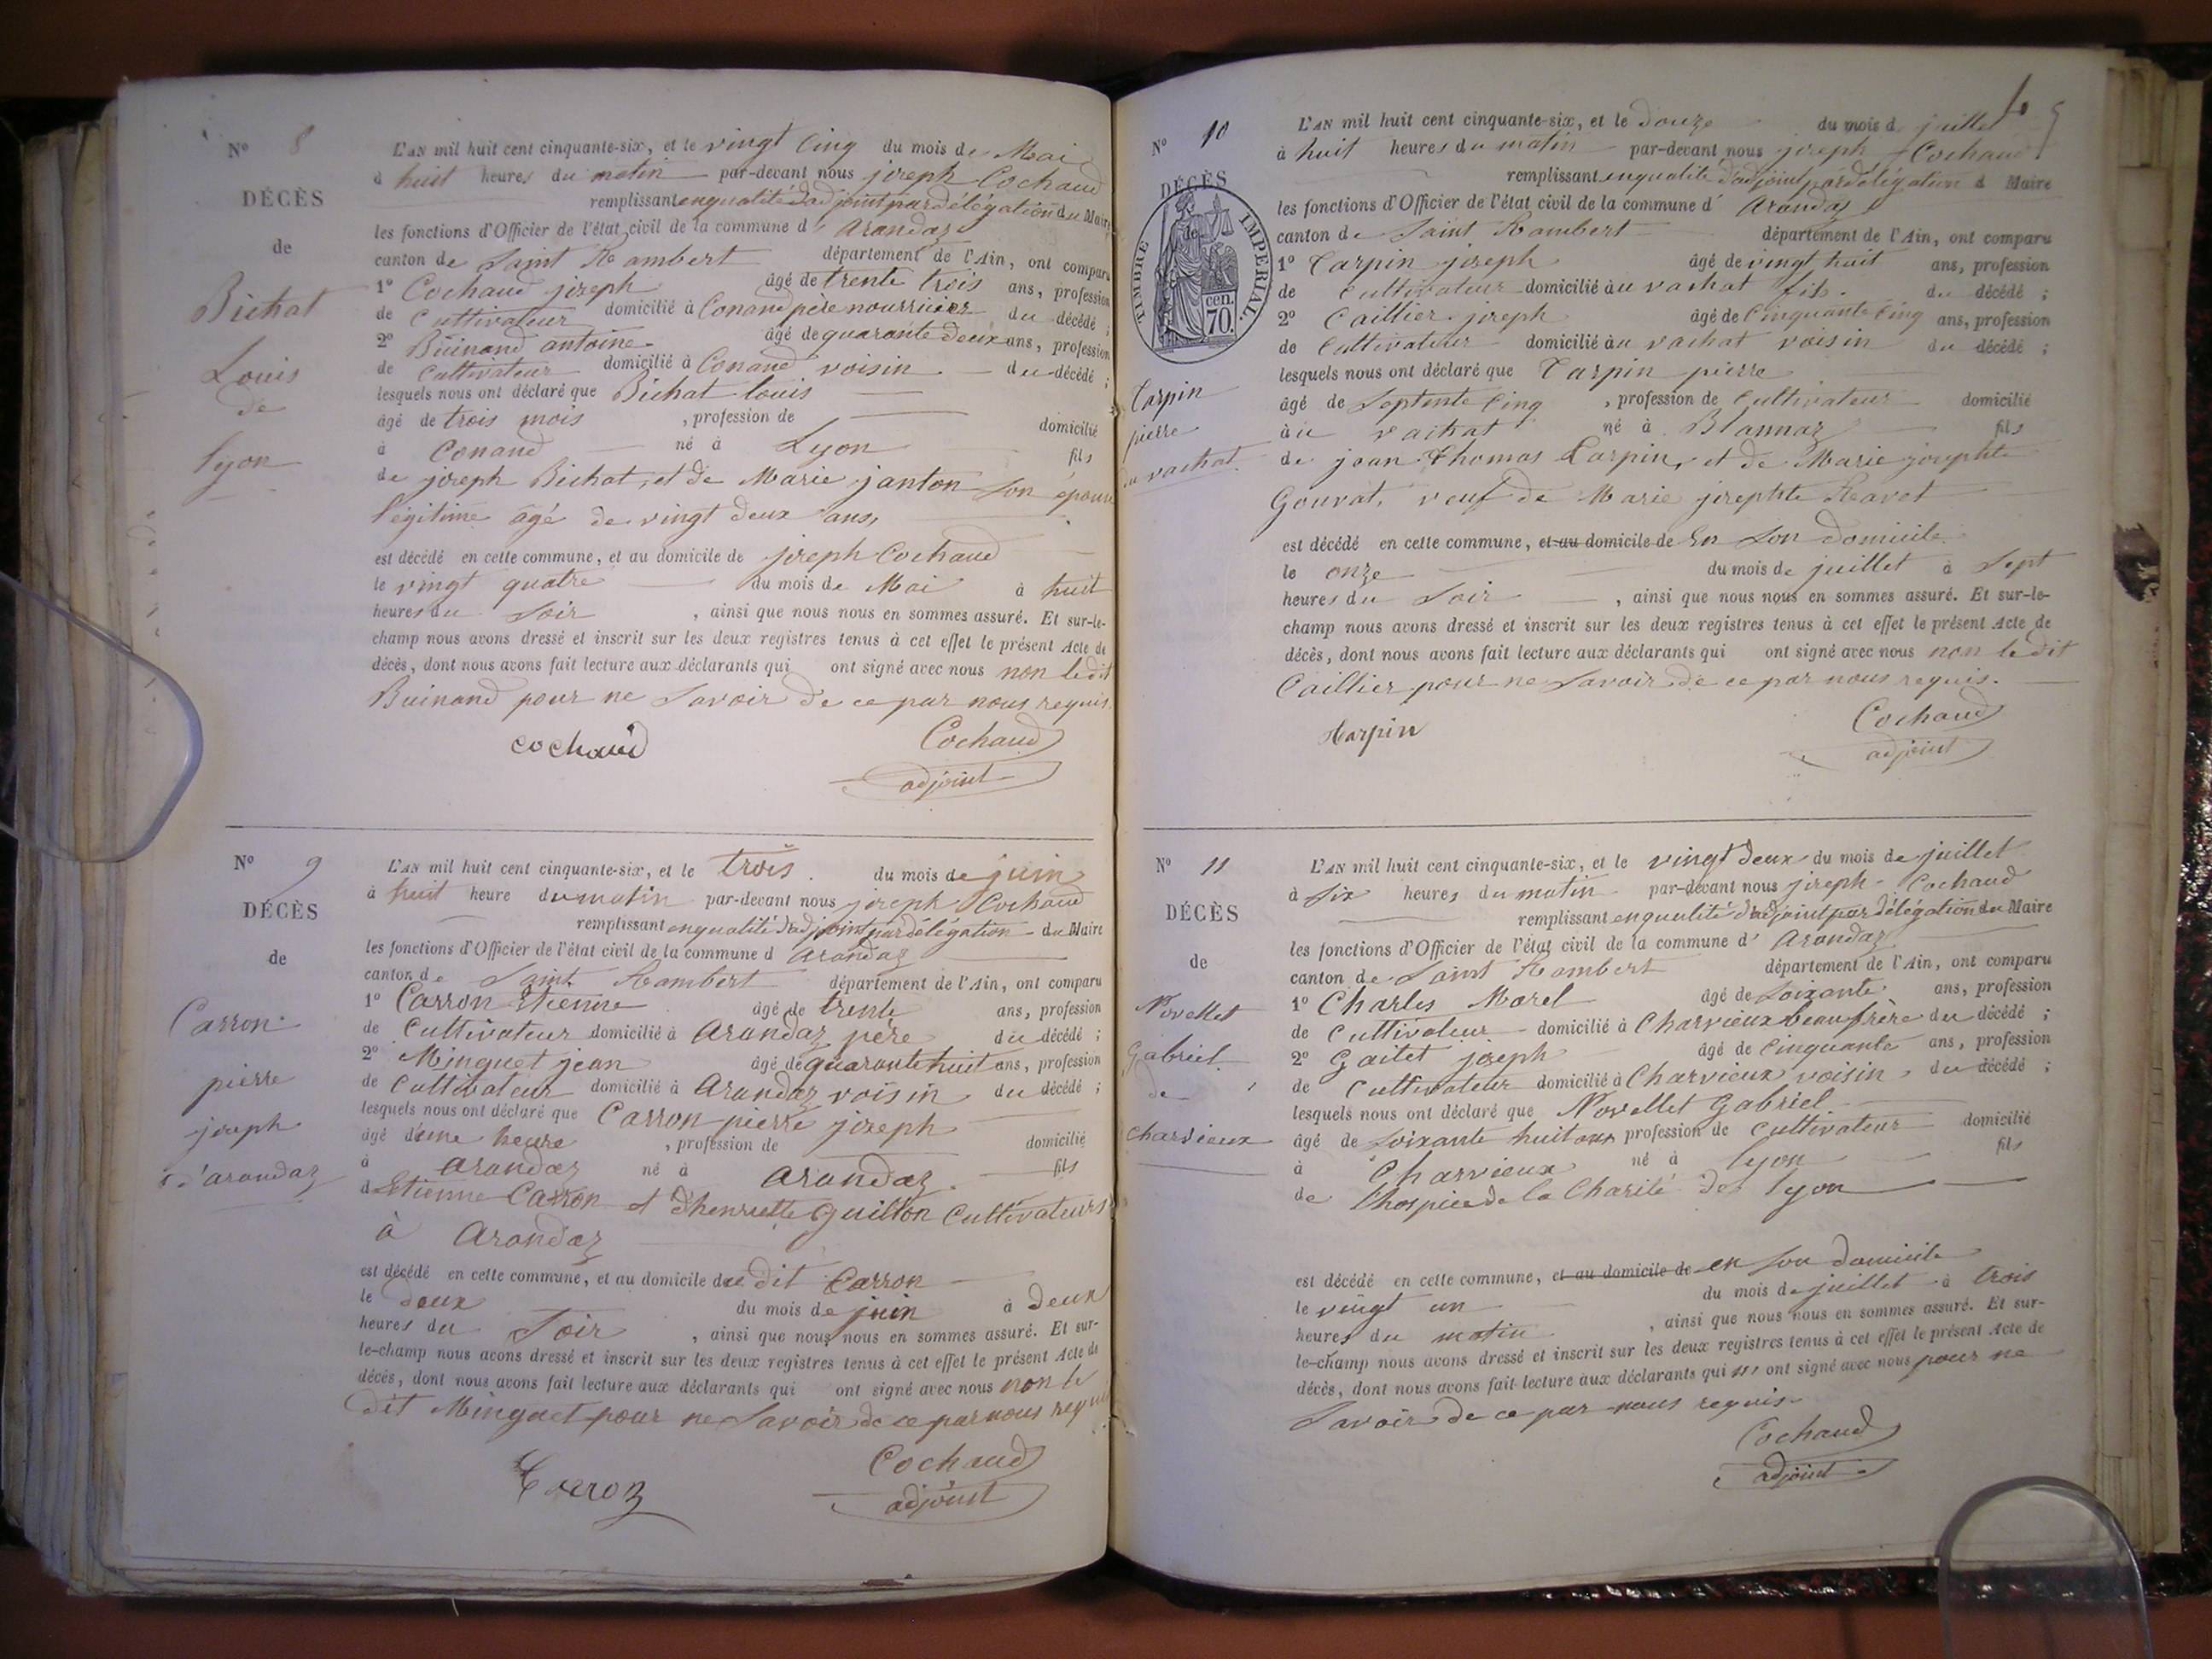 N° 8
DÉCÈS
de
Bichat
Louis
de
lyon
L'AN mil huit cent cinquante-six, et le vingt cinq du mois de Mai
à huit heures du matin par-devant nous joseph Cochaud
remplissant en qualité d'adjoint par délégation du Maire
les fonctions d'Officier de l'état civil de la commune d' Arandaz
canton de Saint Rambert département de l'Ain, ont comparu
1° Cochaud joseph âgé de trente trois ans, profession
de Cultivateur domicilié à Conand père nourricier du décédé ;
2° Buinand antoine âgé de quarante deux ans, profession
de Cultivateur domicilié à Conand voisin du décédé ;
lesquels nous ont déclaré que Bichat louis
âgé de trois mois , profession de domicilié
à Conand né à Lyon fils
de joseph Bichat, et de Marie janton son épouse
légitime agé de vingt deux ans,
est décédé en cette commune, et au domicile de joseph Cochaud
le vingt quatre du mois de Mai à huit
heures du Soir , ainsi que nous nous en sommes assuré. Et sur-le-
champ nous avons dressé et inscrit sur les deux registres tenus à cet effet le présent Acte de
décès, dont nous avons fait lecture aux déclarants qui ont signé avec nous non le dit
Buinand pour ne Savoir de ce par nous requis.
cochaud Cochaud
adjoint
N° 9
DÉCÈS
de
Carron
pierre
joseph
d'arandaz
L'AN mil huit cent cinquante-six, et le trois du mois de juin
à huit heure du matin par-devant nous joseph Cochaud
remplissant en qualité d'adjoint par délégation du Maire
les fonctions d'Officier de l'état civil de la commune d Arandaz
canton de Saint Rambert département de l'Ain, ont comparu
1° Carron Etienne âgé de trente ans, profession
de Cultivateur domicilié à Arandaz père du décédé ;
2° Minguet jean âgé de quarante huit ans, profession
de Cultivateur domicilié à Arandaz voisin du décédé ;
lesquels nous ont déclaré que Carron pierre joseph
âgé d'une heure , profession de domicilié
à Arandaz né à Arandaz fils
d Etienne Carron et d'henriette Guillon Cultivateurs
à Arandaz
est décédé en cette commune, et au domicile du dit Carron
le deux du mois de juin à deux
heures du Soir , ainsi que nous nous en sommes assuré. Et sur-
le-champ nous avons dressé et inscrit sur les deux registres tenus à cet effet le présent Acte de
décès, dont nous avons fait lecture aux déclarants qui ont signé avec nous non le
dit Minguet pour ne Savoir de ce par nous requis
Cochaud
adjoint
N° 10
DÉCÈS
de
TIMBRE IMPERIAL.
70. cen.
Carpin
pierre
du vachat
L'AN mil huit cent cinquante-six, et le douze du mois d juillet
à huit heures du matin par-devant nous joseph Cochaud
remplissant en qualité d'adjoint par délégation d Maire
les fonctions d'Officier de l'état civil de la commune d' Arandaz
canton de Saint Rambert département de l'Ain, ont comparu
1° Carpin joseph âgé de vingt huit ans, profession
de Cultivateur domicilié au vachat fils du décédé ;
2° Caillier joseph âgé de Cinquante Cinq ans, profession
de Cultivateur domicilié au vachat voisin du décédé ;
lesquels nous ont déclaré que Carpin pierre
âgé de Septente Cinq , profession de Cultivateur domicilié
au vachat né à Blannaz fils
de jean Thomas Carpin, et de Marie josephte
Gouvat, veuf de Marie josephte Ravet
est décédé en cette commune, et au domicile de En Son domicile
le onze du mois de juillet à Sept
heures du Soir , ainsi que nous nous en sommes assuré. Et sur-le-
champ nous avons dressé et inscrit sur les deux registres tenus à cet effet le présent Acte de
décès, dont nous avons fait lecture aux déclarants qui ont signé avec nous non le dit
Caillier pour ne Savoir de ce par nous requis.
Carpin Cochaud
adjoint
N° 11
DÉCÈS
de
Novellet
Gabriel
de
Charvieux
L'AN mil huit cent cinquante-six, et le vingt deux du mois de juillet
à Six heures du matin par-devant nous joseph Cochaud
remplissant en qualité d'adjoint par délégation du Maire
les fonctions d'Officier de l'état civil de la commune d' Arandaz
canton de Saint Rambert département de l'Ain, ont comparu
1° Charles Morel âgé de Soixante ans, profession
de Cultivateur domicilié à Charvieux beau frère du décédé ;
2° Gaitet joseph âgé de Cinquante ans, profession
de Cultivateur domicilié à Charvieux voisin du décédé ;
lesquels nous ont déclaré que Novellet Gabriel
âgé de Soixante huit ans profession de Cultivateur domicilié
à Charvieux né à lyon fils
de l'hospice de la Charité de lyon
est décédé en cette commune, et au domicile de en Son domicile
le vingt un du mois de juillet à trois
heures du matin , ainsi que nous nous en sommes assuré. Et sur-
le-champ nous avons dressé et inscrit sur les deux registres tenus à cet effet le présent Acte de
décès, dont nous avons fait lecture aux déclarants qui n' ont signé avec nous pour ne
Savoir de ce par nous requis
Cochaud
adjoint